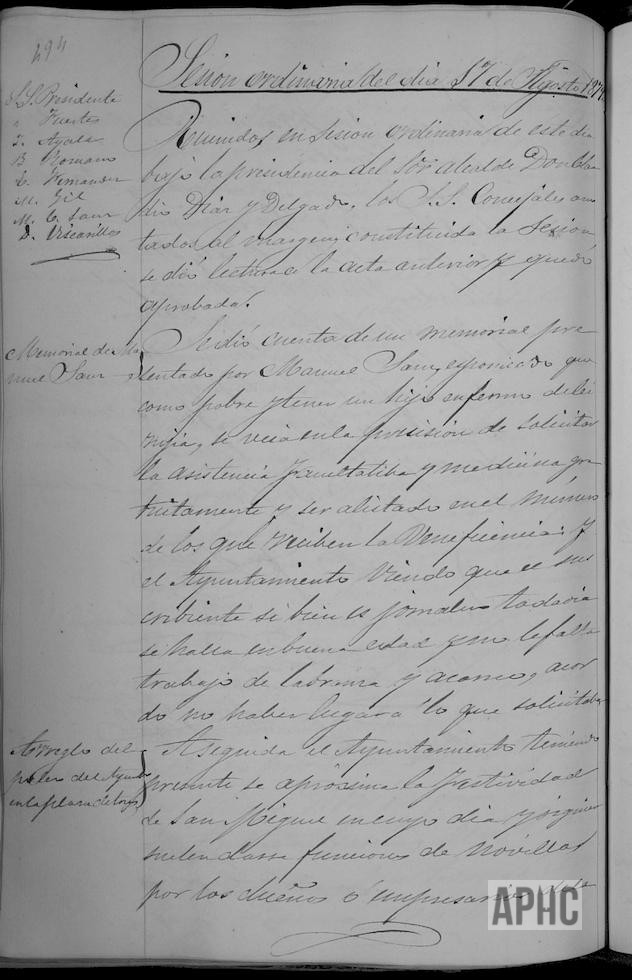 494
Sesion ordinaria del dia 17 de Agosto 187
S.S. Presidente
" Fuertes
T. Ayala
B Romano
C. Hernandez
M. Gil
M. C. Saur
D. Viscarillas
Reunidos en sesion ordinaria de este dia
bajo la presidencia del Sor. Alcalde Don Clau
dio Diaz y Delgado, los S.S. Concejales ano
tados al margen; constituida la Sesion
se dió lectura a la acta anterior y quedó
aprobada.
Memorial de Ma
nuel Saur
Se dió cuenta de un memorial pre
sentado por Manuel Saur, esponiendo que
como pobre y tener un hijo enfermo de
se veia en la presision de solicitar
la asistencia facultatiba y medicina gra
tuitamente y ser alistado en el número
de los que reciben la Beneficencia: y
el Ayuntamiento viendo que el sus
cribiente si bien es jornalero todavia
se halla en buena edad y no le falta
trabajo de labranza y acarreo, acor
dó no haber lugar á lo que solicitaba
Arreglo del
palco del Ayunta
en la plaza de toros
Aseguida el Ayuntamiento teniendo
presente se aprosima la festividad
de San Miguel en cuyo dia y siguien
suelen darse funciones de novillos
por los dueños ó empresarios de la
APHC